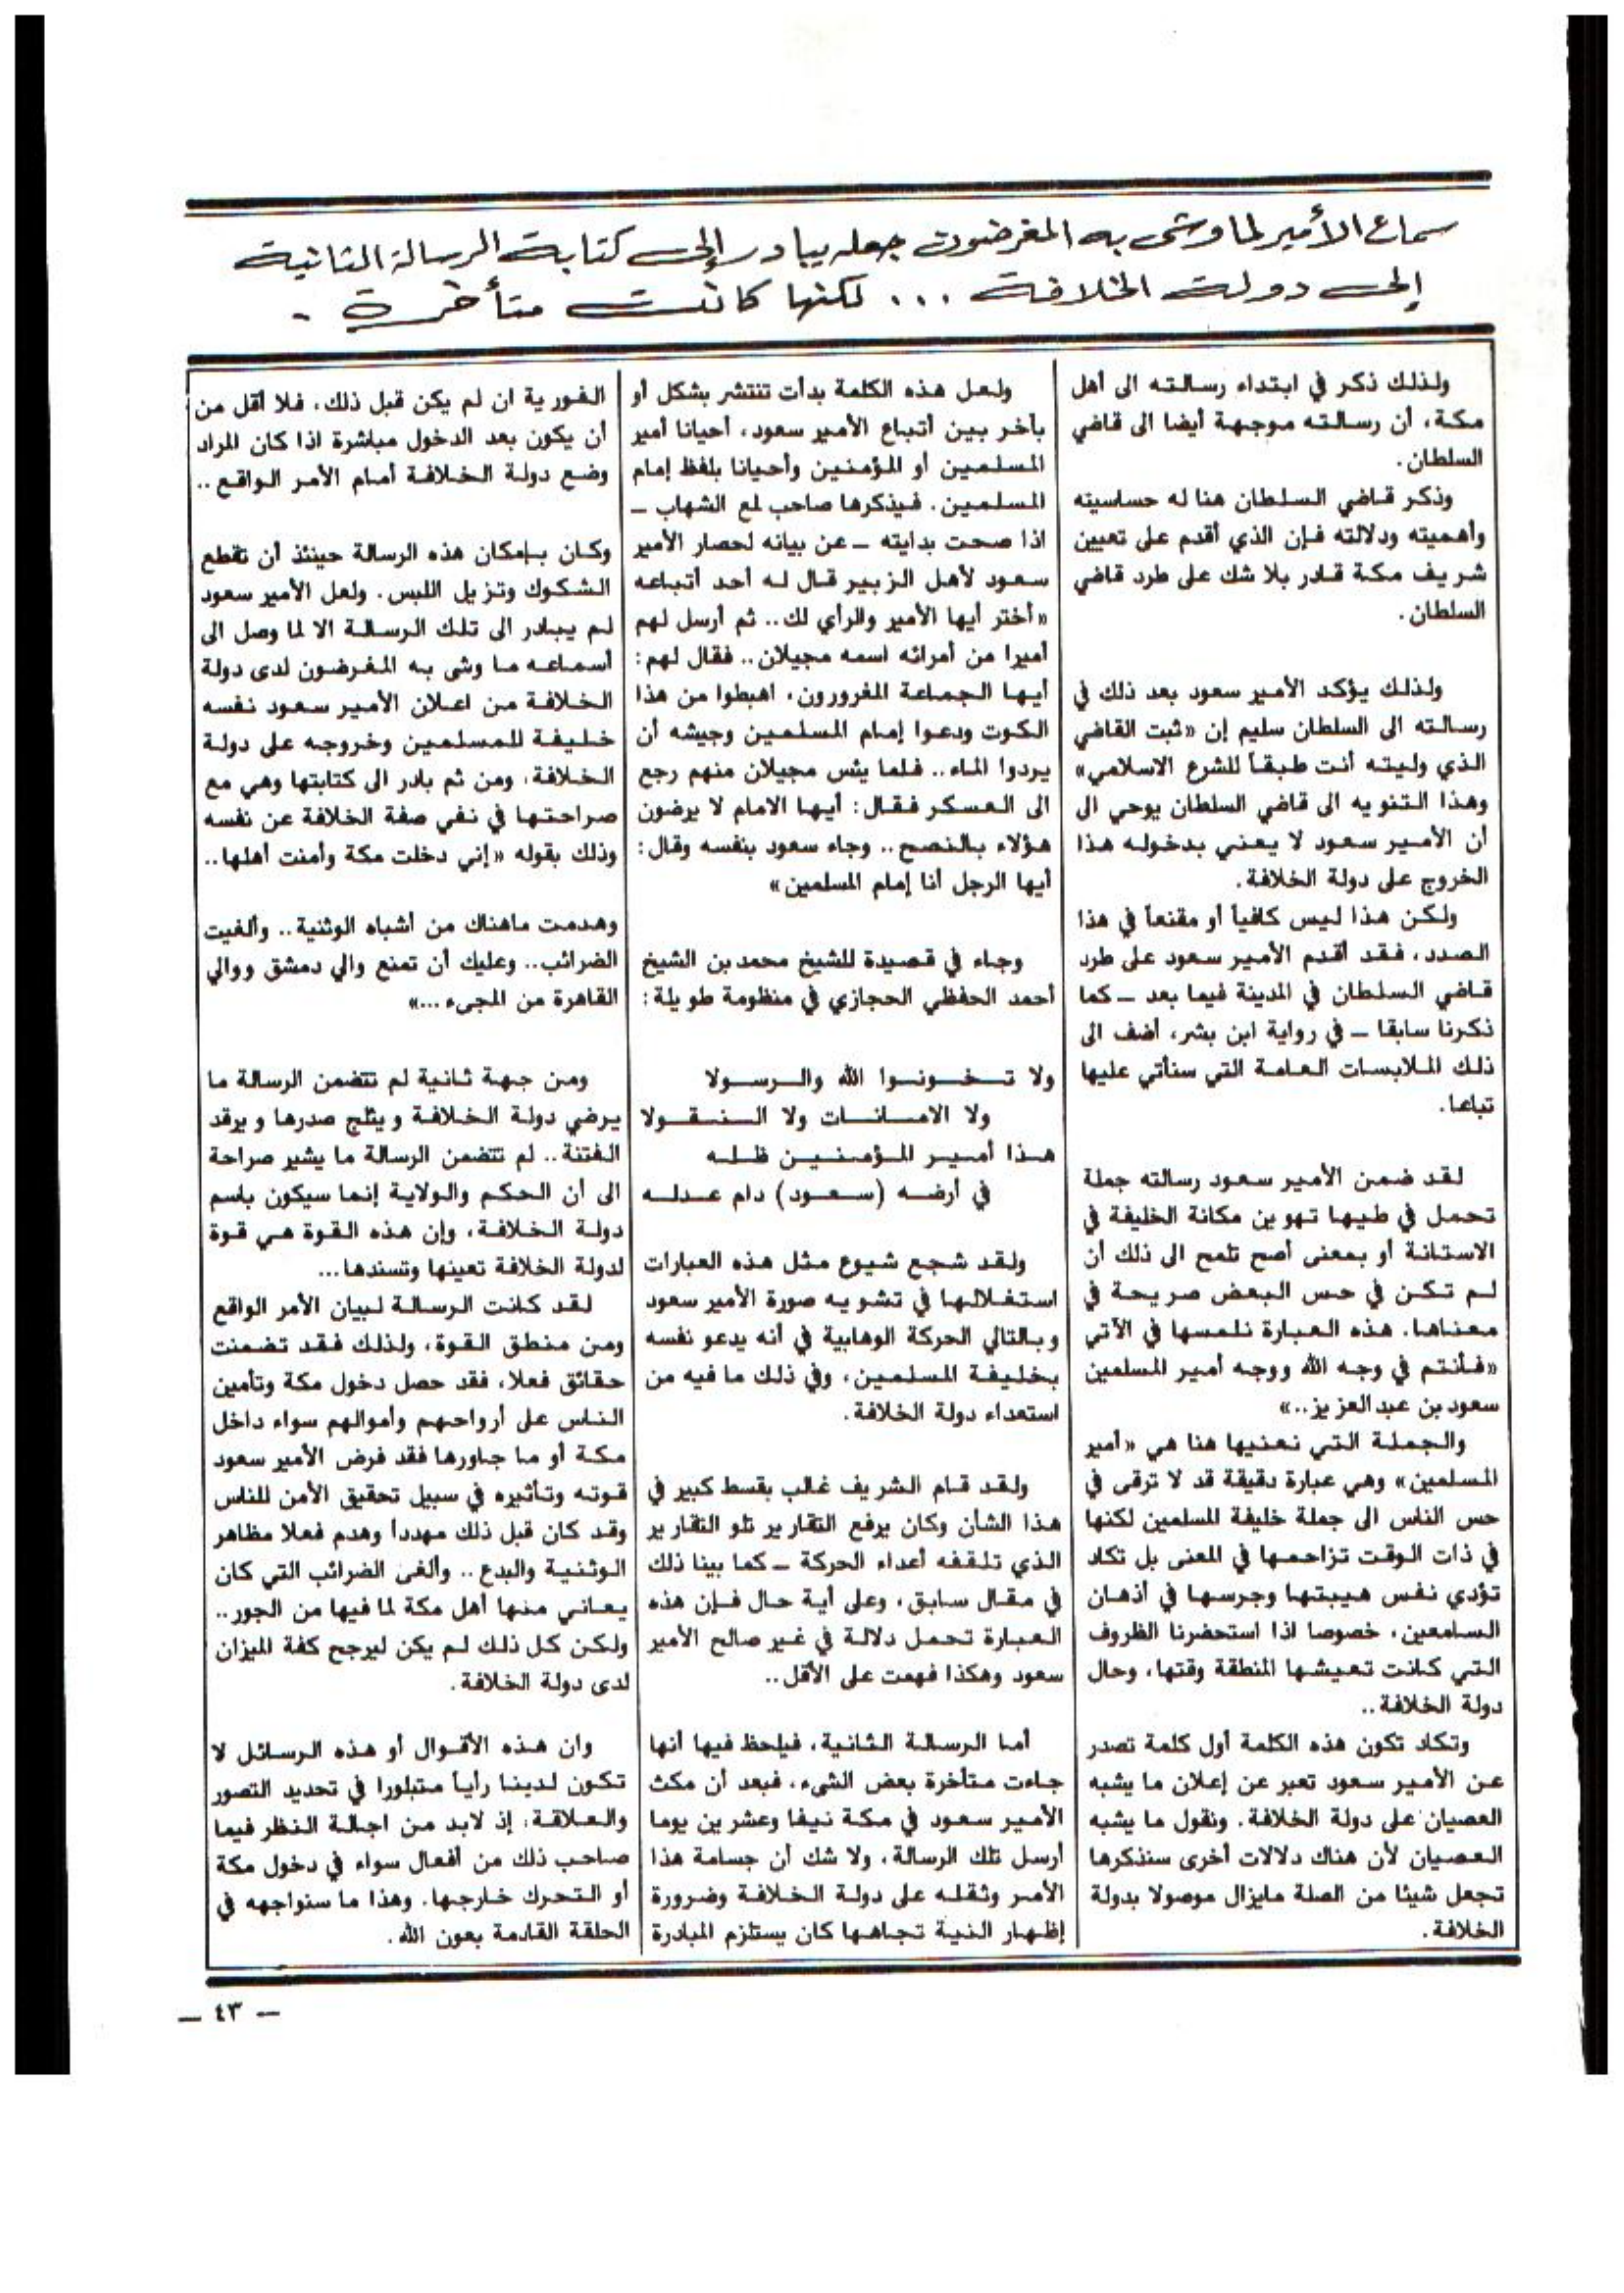 سماع الأمير لما وشى به المغرضون جعله يبادر إلى كتابة الرسالة الثانية
إلى دولة الخلافة ... لكنها كانت متأخرة .
ولذلك ذكر في ابتداء رسالته الى أهل
مكة، أن رسالته موجهة أيضا الى قاضي
السلطان.
وذكر قاضي السلطان هنا له حساسيته
وأهميته ودلالته فإن الذي أقدم على تعيين
شريف مكة قادر بلا شك على طرد قاضي
السلطان.
ولذلك يؤكد الأمير سعود بعد ذلك في
رسالته الى السلطان سليم إن «ثبت القاضي
الذي وليته أنت طبقاً للشرع الاسلامي»
وهذا التنويه الى قاضي السلطان يوحي الى
أن الأمير سعود لا يعني بدخوله هذا
الخروج على دولة الخلافة.
ولكن هذا ليس كافياً أو مقنعاً في هذا
الصدد، فقد أقدم الأمير سعود على طرد
قاضي السلطان في المدينة فيما بعد — كما
ذكرنا سابقا — في رواية ابن بشر، أضف الى
ذلك الملابسات العامة التي سنأتي عليها
تباعا.
لقد ضمن الأمير سعود رسالته جملة
تحمل في طيها تهوين مكانة الخليفة في
الاستانة أو بمعنى أصح تلمح الى ذلك أن
لم تكن في حس البعض صريحة في
معناها. هذه العبارة نلمسها في الآتي
«فأنتم في وجه الله ووجه أمير المسلمين
سعود بن عبد العزيز..»
والجملة التي نعنيها هنا هي «أمير
المسلمين» وهي عبارة دقيقة قد لا ترقى في
حس الناس الى جملة خليفة المسلمين لكنها
في ذات الوقت تزاحمها في المعنى بل تكاد
تؤدي نفس هيبتها وجرسها في أذهان
السامعين، خصوصا اذا استحضرنا الظروف
التي كانت تعيشها المنطقة وقتها، وحال
دولة الخلافة..
وتكاد تكون هذه الكلمة أول كلمة تصدر
عن الأمير سعود تعبر عن إعلان ما يشبه
العصيان على دولة الخلافة. ونقول ما يشبه
العصيان لأن هناك دلالات أخرى سنذكرها
تجعل شيئا من الصلة مايزال موصولا بدولة
الخلافة.
ولعل هذه الكلمة بدأت تنتشر بشكل أو
بآخر بين أتباع الأمير سعود، أحيانا أمير
المسلمين أو المؤمنين وأحيانا بلفظ إمام
المسلمين. فيذكرها صاحب لمع الشهاب —
اذا صحت بدايته — عن بيانه لحصار الأمير
سعود لأهل الزبير قال له أحد أتباعه
«أختر أيها الأمير والرأي لك.. ثم أرسل لهم
أميرا من أمرائه اسمه مجيلان.. فقال لهم:
أيها الجماعة المغرورون، اهبطوا من هذا
الكوت ودعوا إمام المسلمين وجيشه أن
يردوا الماء.. فلما يئس مجيلان منهم رجع
الى العسكر فقال: أيها الامام لا يرضون
هؤلاء بالنصح.. وجاء سعود بنفسه وقال:
أيها الرجل أنا إمام المسلمين»
وجاء في قصيدة للشيخ محمد بن الشيخ
أحمد الحفظي الحجازي في منظومة طويلة:
ولا تخونوا الله والرسولا
ولا الامانات ولا النقولا
هذا أمير المؤمنين ظله
في أرضه (سعود) دام عدله
ولقد شجع شيوع مثل هذه العبارات
استغلالها في تشويه صورة الأمير سعود
وبالتالي الحركة الوهابية في أنه يدعو نفسه
بخليفة المسلمين، وفي ذلك ما فيه من
استعداء دولة الخلافة.
ولقد قام الشريف غالب بقسط كبير في
هذا الشأن وكان يرفع التقارير تلو التقارير
الذي تلقفه أعداء الحركة — كما بينا ذلك
في مقال سابق، وعلى أية حال فإن هذه
العبارة تحمل دلالة في غير صالح الأمير
سعود وهكذا فهمت على الأقل..
أما الرسالة الثانية، فيلحظ فيها أنها
جاءت متأخرة بعض الشىء، فبعد أن مكث
الأمير سعود في مكة نيفا وعشرين يوما
أرسل تلك الرسالة، ولا شك أن جسامة هذا
الأمر وثقله على دولة الخلافة وضرورة
إظهار النية تجاهها كان يستلزم المبادرة
الفورية ان لم يكن قبل ذلك، فلا أقل من
أن يكون بعد الدخول مباشرة اذا كان المراد
وضع دولة الخلافة أمام الأمر الواقع..
وكان بإمكان هذه الرسالة حينئذ أن تقطع
الشكوك وتزيل اللبس. ولعل الأمير سعود
لم يبادر الى تلك الرسالة الا لما وصل الى
أسماعه ما وشى به المغرضون لدى دولة
الخلافة من اعلان الأمير سعود نفسه
خليفة للمسلمين وخروجه على دولة
الخلافة، ومن ثم بادر الى كتابتها وهي مع
صراحتها في نفي صفة الخلافة عن نفسه
وذلك بقوله «إني دخلت مكة وأمنت أهلها..
وهدمت ماهناك من أشباه الوثنية.. وألغيت
الضرائب.. وعليك أن تمنع والي دمشق ووالي
القاهرة من المجىء...»
ومن جهة ثانية لم تتضمن الرسالة ما
يرضي دولة الخلافة ويثلج صدرها ويرقد
الفتنة.. لم تتضمن الرسالة ما يشير صراحة
الى أن الحكم والولاية إنما سيكون باسم
دولة الخلافة، وإن هذه القوة هي قوة
لدولة الخلافة تعينها وتسندها...
لقد كانت الرسالة لبيان الأمر الواقع
ومن منطق القوة، ولذلك فقد تضمنت
حقائق فعلا، فقد حصل دخول مكة وتأمين
الناس على أرواحهم وأموالهم سواء داخل
مكة أو ما جاورها فقد فرض الأمير سعود
قوته وتأثيره في سبيل تحقيق الأمن للناس
وقد كان قبل ذلك مهددا وهدم فعلا مظاهر
الوثنية والبدع.. وألغى الضرائب التي كان
يعاني منها أهل مكة لما فيها من الجور..
ولكن كل ذلك لم يكن ليرجح كفة الميزان
لدى دولة الخلافة.
وان هذه الأقوال أو هذه الرسائل لا
تكون لدينا رأياً متبلورا في تحديد التصور
والعلاقة، إذ لابد من اجالة النظر فيما
صاحب ذلك من أفعال سواء في دخول مكة
أو التحرك خارجها. وهذا ما سنواجهه في
الحلقة القادمة بعون الله.
— ٤٣ —